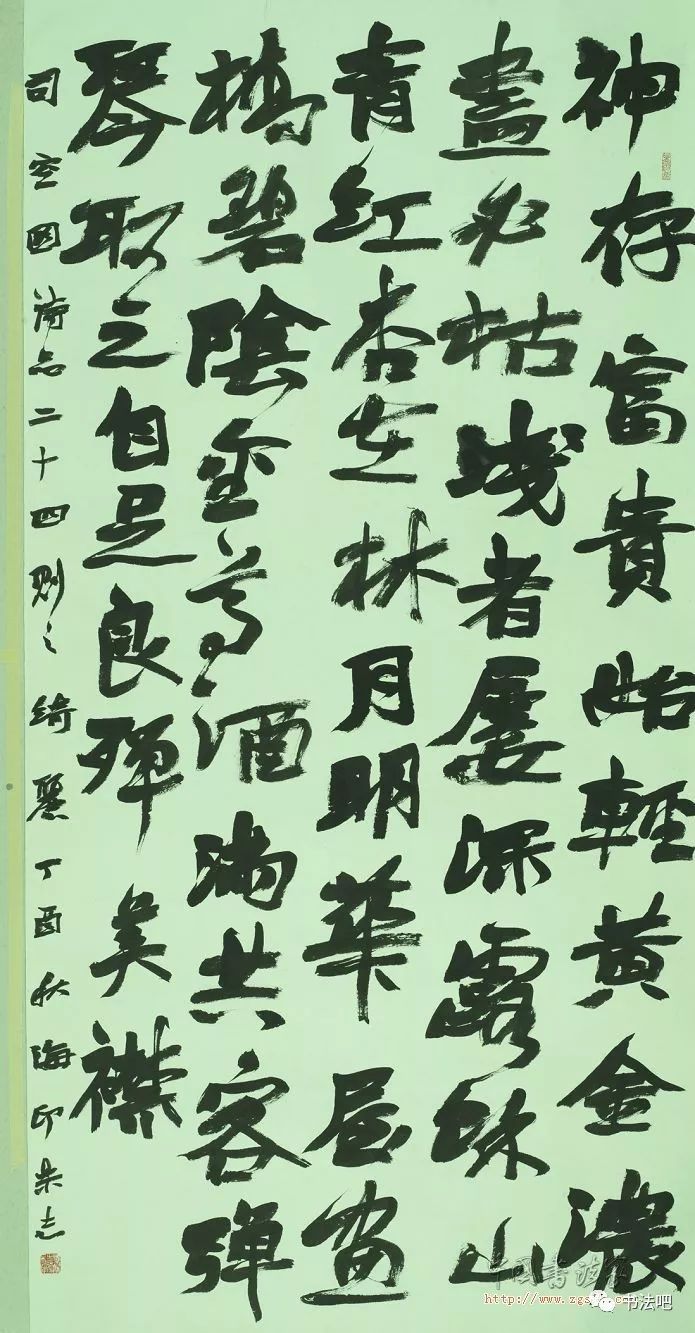 神存富貴始輕黃金濃
盡必枯淺者屢深露餘山
青紅杏在林月明華屋畫
橋碧陰金尊酒滿共客彈
琴取之自足良殫美襟
司空圖詩品二十四則之綺麗丁酉秋海印朱志
http://www.zgsf
书法吧